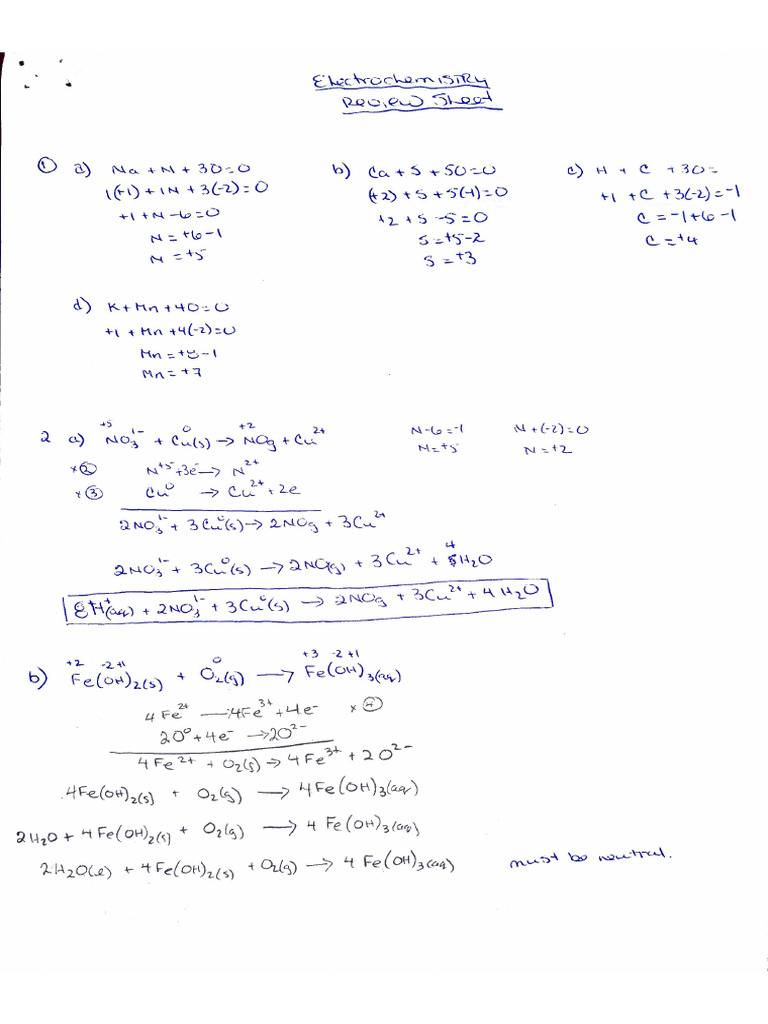 Electrochemistry
Review Sheet
① a) Na + N + 3O = 0
1(+1) + 1N + 3(-2) = 0
+1 + N - 6 = 0
N = +6 - 1
N = +5
b) Ca + S + 5O = 0
(+2) + S + 5(-1) = 0
+2 + S - 5 = 0
S = +5 - 2
S = +3
c) H + C + 3O =
+1 + C + 3(-2) = -1
C = -1 + 6 - 1
C = +4
d) K + Mn + 4O = 0
+1 + Mn + 4(-2) = 0
Mn = +8 - 1
Mn = +7
+5 0 +2
2 a) NO₃¹⁻ + Cu(s) → NOg + Cu²⁺
N - 6 = -1
N = +5
N + (-2) = 0
N = +2
x② N⁺⁵ + 3e⁻ → N²⁺
x③ Cu⁰ → Cu²⁺ + 2e
2NO₃¹⁻ + 3Cu⁰(s) → 2NOg + 3Cu²⁺
2NO₃¹⁻ + 3Cu⁰(s) → 2NO(g) + 3Cu²⁺ + 4H₂O
8H⁺(aq) + 2NO₃¹⁻ + 3Cu⁰(s) → 2NOg + 3Cu²⁺ + 4H₂O
+2 -2 +1 0 +3 -2 +1
b) Fe(OH)₂(s) + O₂(g) → Fe(OH)₃(aq)
4Fe²⁺ → 4Fe³⁺ + 4e⁻ x④
2O⁰ + 4e⁻ → 2O²⁻
4Fe²⁺ + O₂(g) → 4Fe³⁺ + 2O²⁻
4Fe(OH)₂(s) + O₂(g) → 4Fe(OH)₃(aq)
2H₂O + 4Fe(OH)₂(s) + O₂(g) → 4Fe(OH)₃(aq)
2H₂O(l) + 4Fe(OH)₂(s) + O₂(g) → 4Fe(OH)₃(aq) must be neutral.